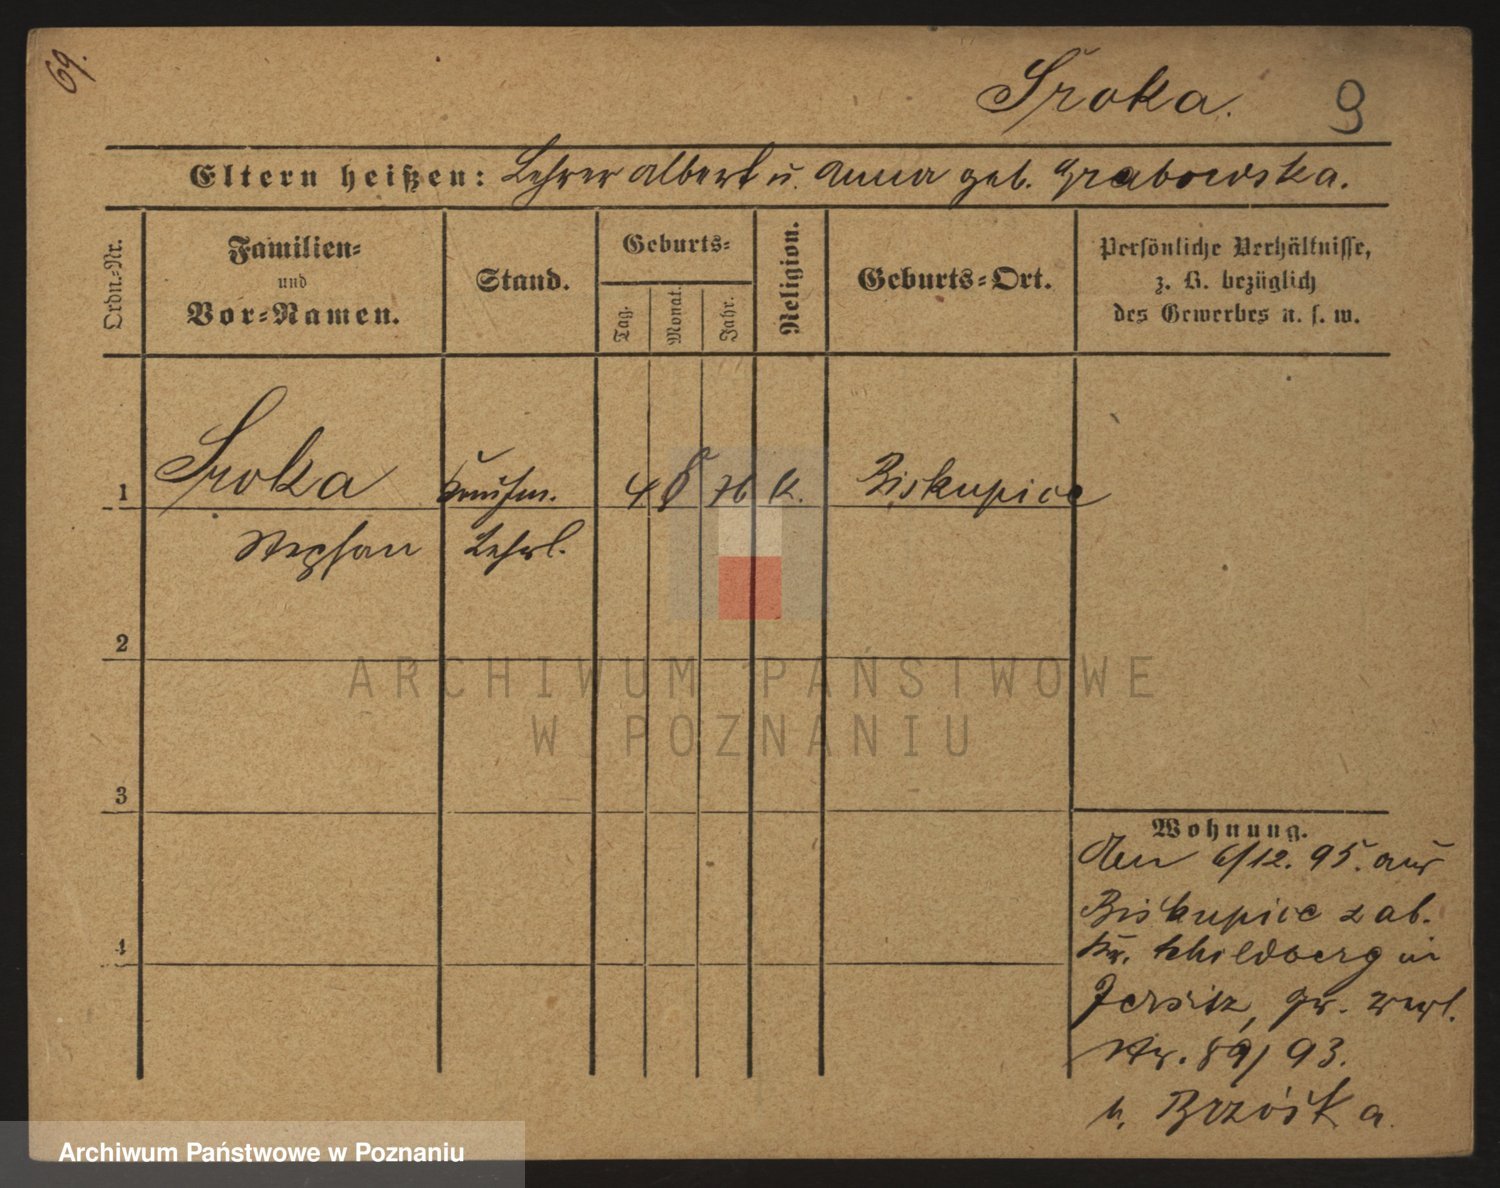 69.
Sroka.
9
Eltern heißen: Lehrer Albert u. Anna geb. Grabowska.
Ordn.-Nr.
Familien-
und
Vor-Namen.
Stand.
Geburts-
Tag.
Monat.
Jahr.
Religion.
Geburts-Ort.
Persönliche Verhältnisse,
z. B. bezüglich
des Gewerbes u. s. w.
1
Sroka
Kaufm.
4
8
76
K.
Biskupice
Stephan
Lehrl.
2
3
4
ARCHIWUM PAŃSTWOWE
W POZNANIU
Wohnung.
Den 6/12. 95. aus
Biskupice zab.
Kr. Schildberg in
Jersitz, Gr.
Nr. 89/93.
b. Brzóska
Archiwum Państwowe w Poznaniu